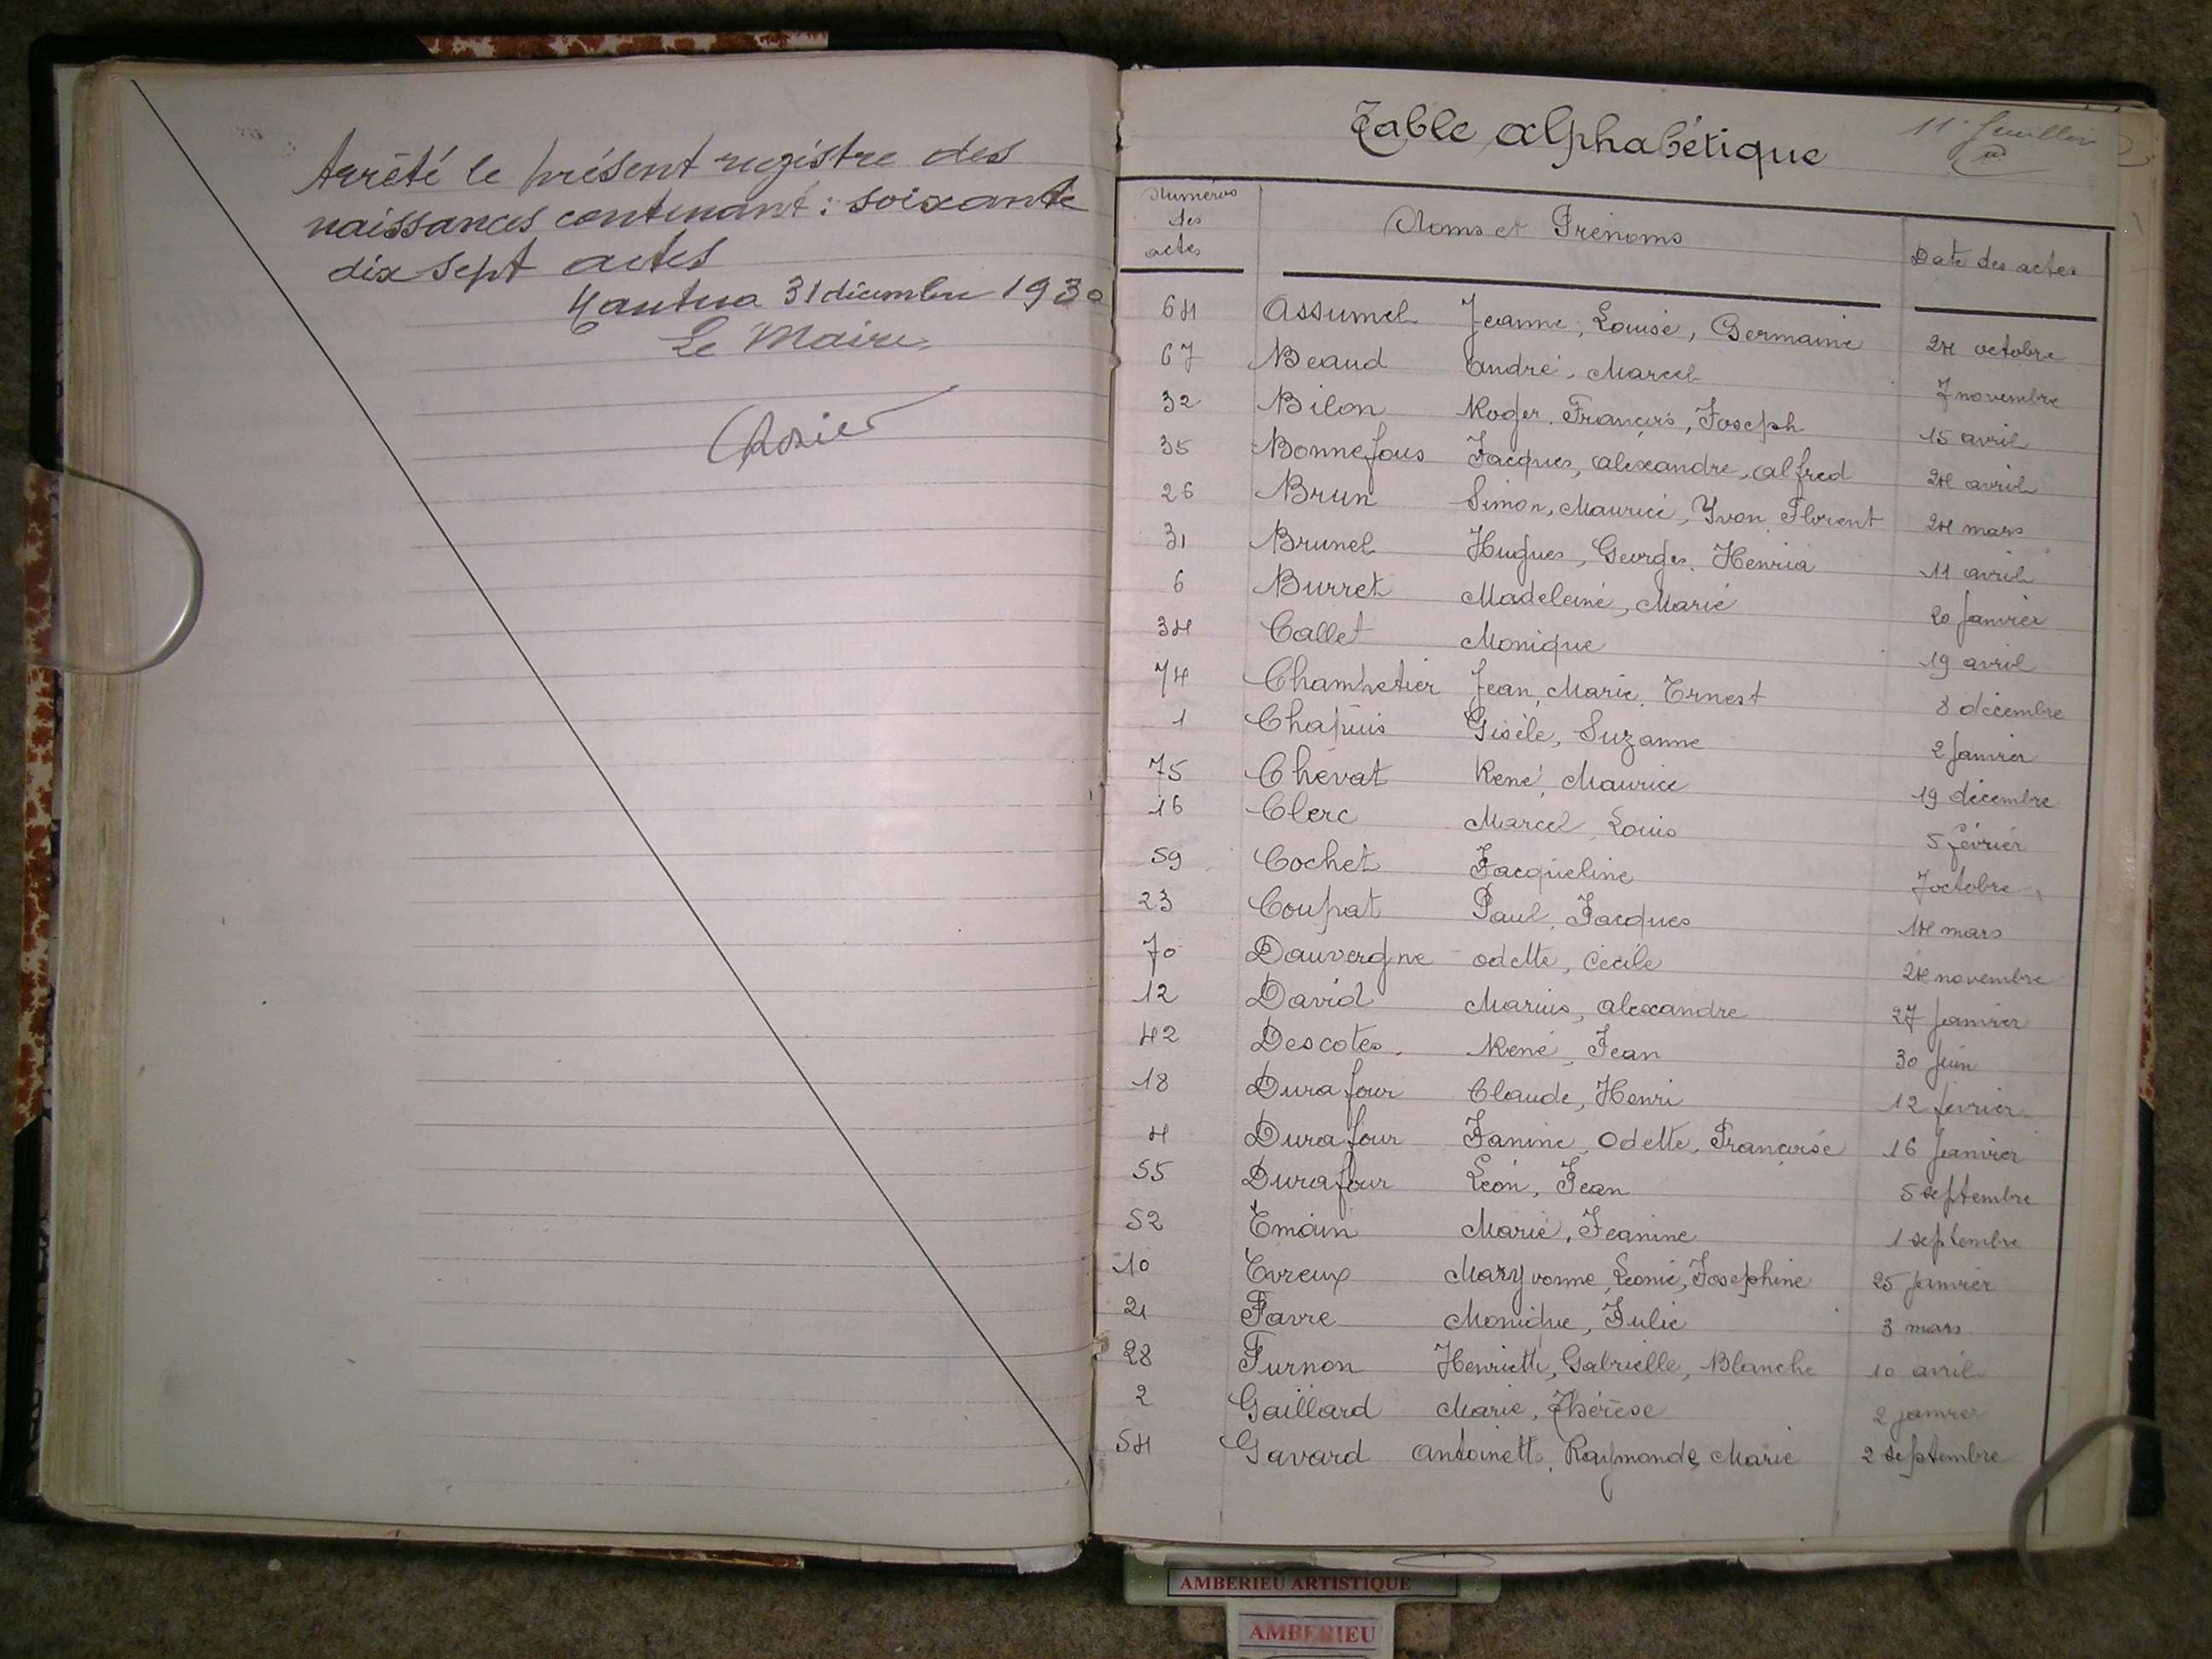 Arrêté le présent registre des
naissances contenant : soixante
dix sept actes
Nantua 31 décembre 1930
Le Maire,
Table alphabétique
11e feuillet
Numéros des actes
Noms et Prénoms
Date des actes
64 Assumel Jeanne, Louise, Germaine 24 octobre
67 Beaud André, Marcel 7 novembre
32 Bilon Roger, François, Joseph 15 avril
35 Bonnefous Jacques, Alexandre, Alfred 24 avril
26 Brun Simon, Maurice, Yvon, Florent 24 mars
31 Brunel Hugues, Georges, Henria 11 avril
6 Burret Madeleine, Marie 20 janvier
34 Callet Monique 19 avril
74 Champetier Jean, Marie, Ernest 8 décembre
1 Chapuis Gisèle, Suzanne 2 janvier
75 Chevat René, Maurice 19 décembre
16 Clerc Marcel, Louis 5 février
59 Cochet Jacqueline 7 octobre
23 Coupat Paul, Jacques 14 mars
70 Dauvergne Odette, Cécile 24 novembre
12 David Marius, Alexandre 27 janvier
42 Descotes René, Jean 30 juin
18 Durafour Claude, Henri 12 février
4 Durafour Janine, Odette, Françoise 16 janvier
55 Durafour Léon, Jean 5 septembre
52 Emain Marie, Jeanine 1 septembre
10 Evreux Maryvonne, Léonie, Josephine 25 janvier
21 Favre Monique, Julie 3 mars
28 Furnon Henriette, Gabrielle, Blanche 10 avril
2 Gaillard Marie, Thérèse 2 janvier
54 Gavard Antoinette, Raymonde, Marie 2 septembre
AMBERIEU ARTISTIQUE
AMBERIEU